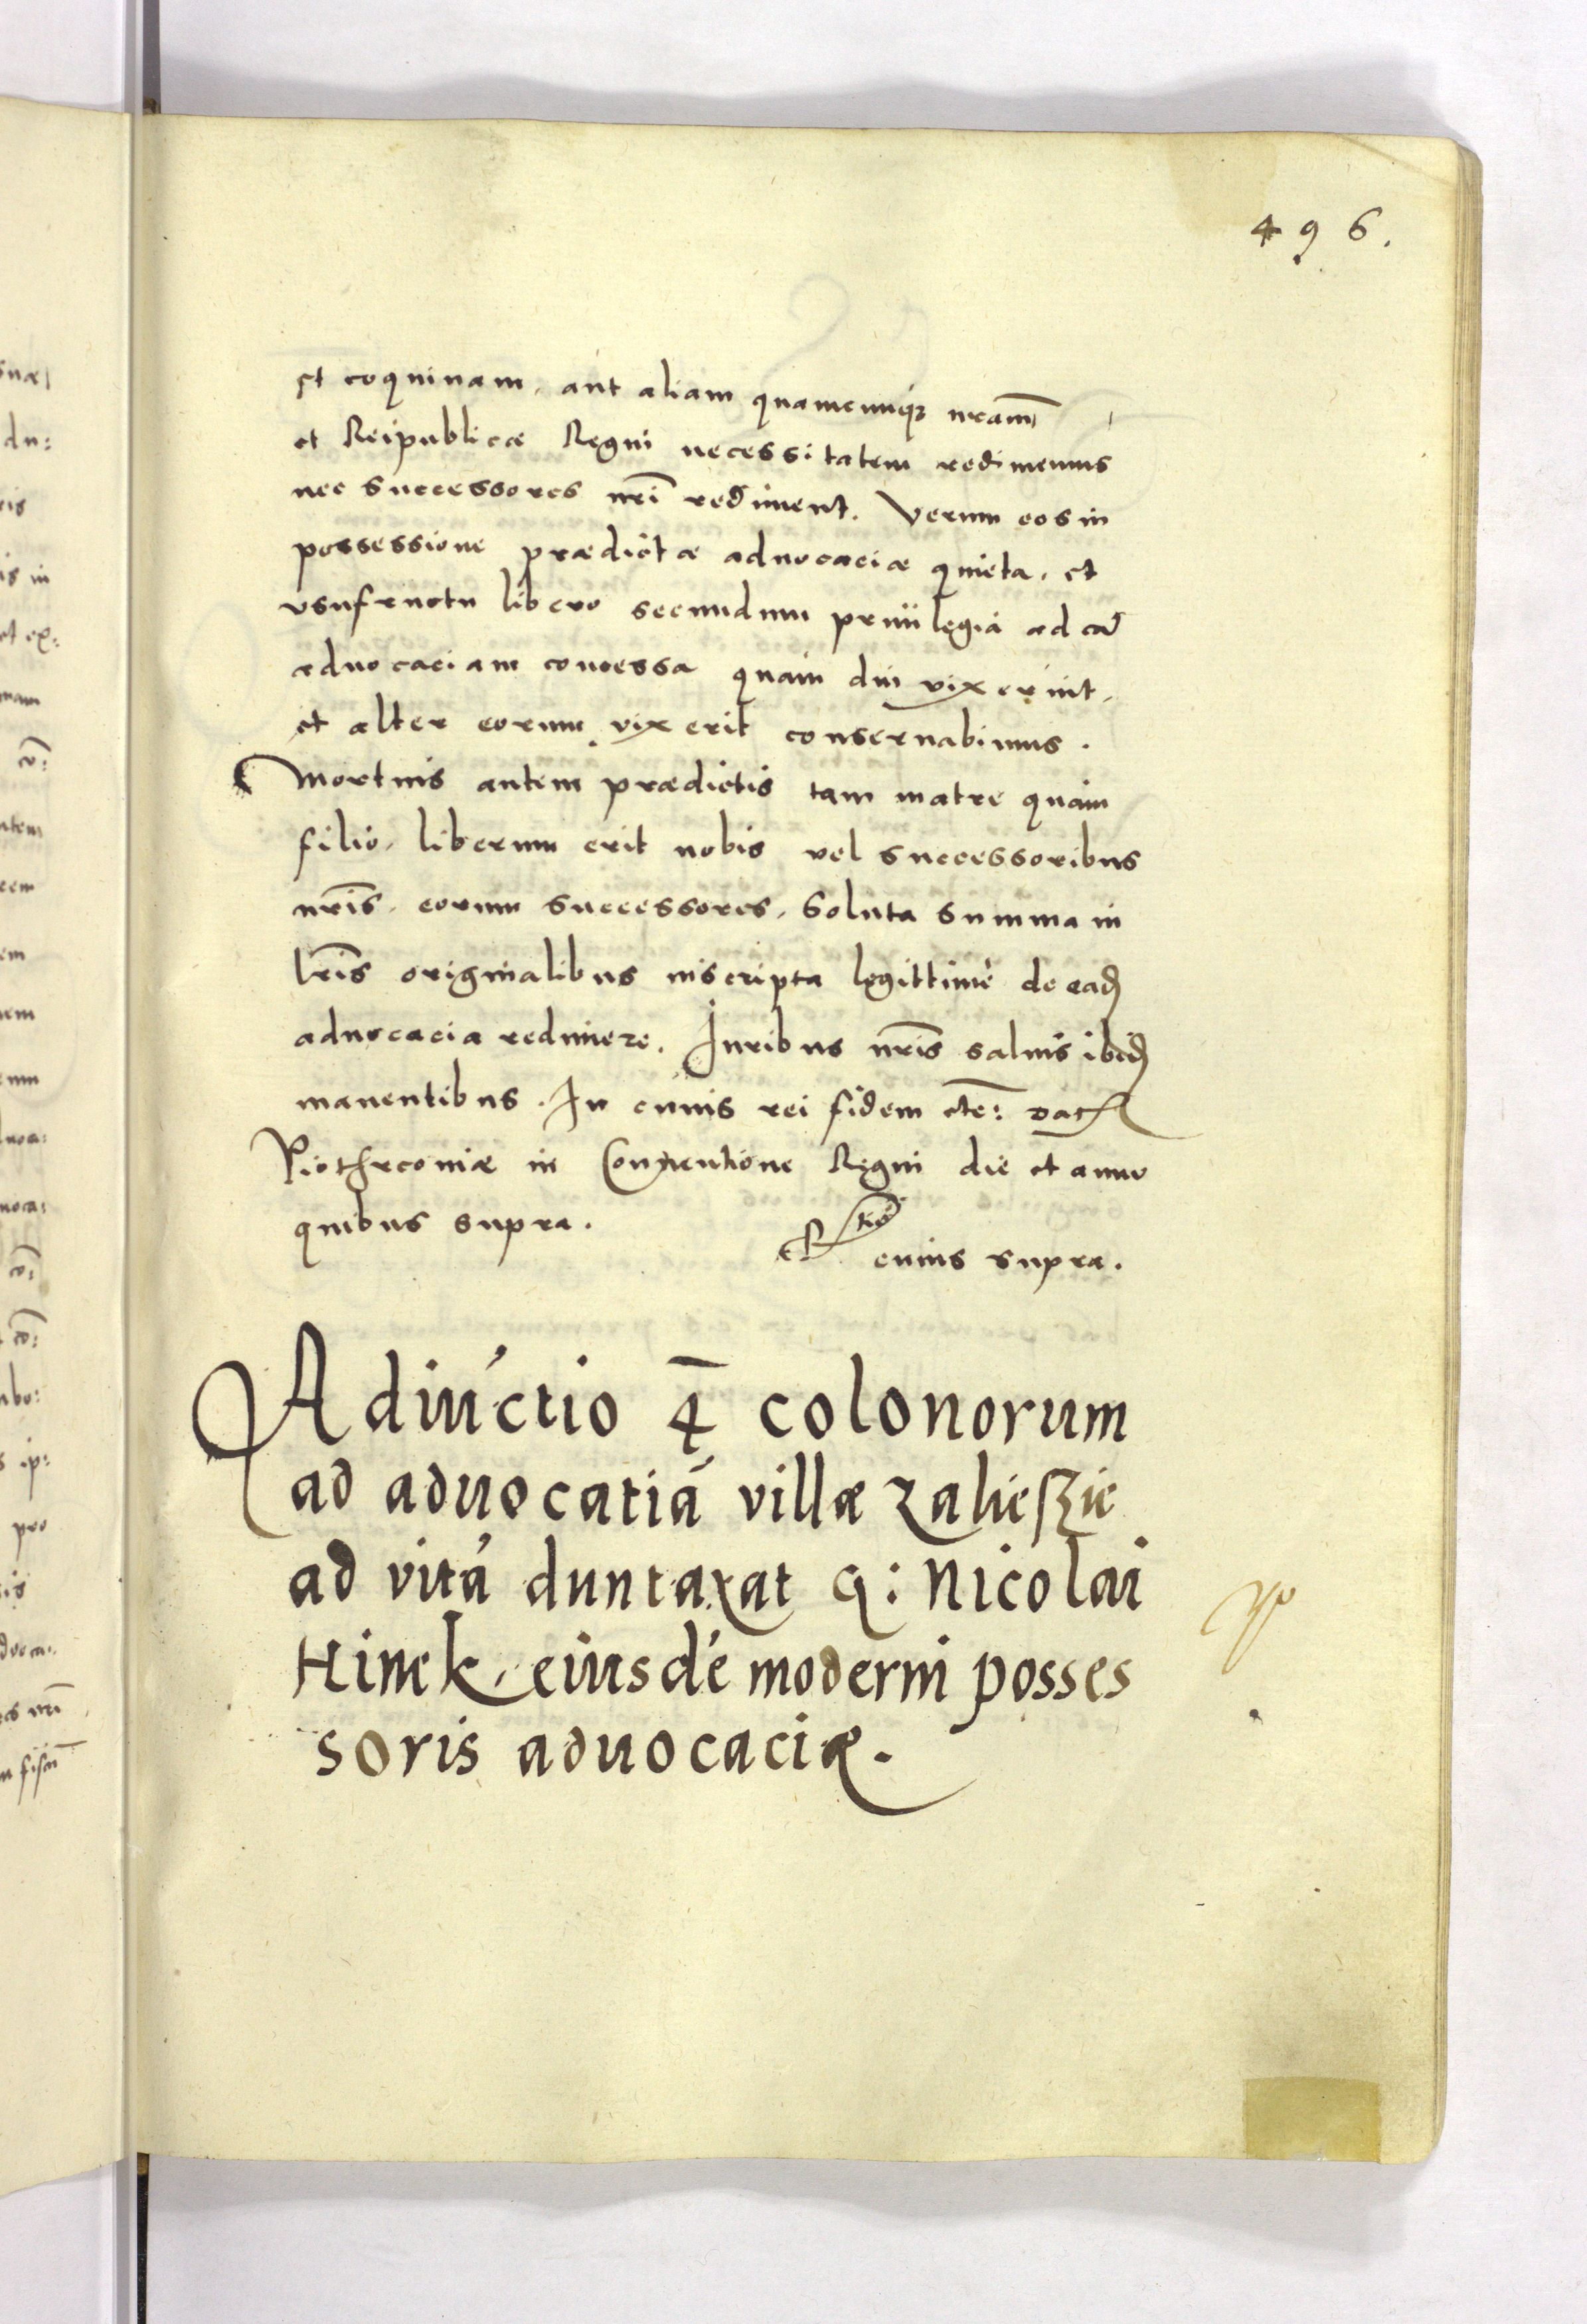 496.
et coquinam, aut aliam quamcunq; nr̃am
et Reipublicæ Regni necessitatem redimemus
nec successores nr̃i rediment. Verum eos in
possessione prædictæ aduocaciæ quieta, et
vsufructu libero secundum priuilegia ad eã
aduocaciam concessa quàm diu vixerint,
et alter eorum vixerit conseruabimus.
Mortuis autem prædictis tam matre quàm
filio, liberum erit nobis vel successoribus
nr̃is, eorum successores, soluta summa in
lr̃is originalibus inscripta legittimè de eadẽ
aduocacia redimere. Iuribus nr̃is saluis ibidẽ
manentibus. In cuius rei fidem etc̃: Dat
Piotrconiæ in Conuentione Regni die et anno
quibus supra.
Rtio
cuius supra.
Adiúctio 4 colonorum
ad aduocatiá villæ Zalieszie
ad vitá duntaxat G: Nicolai
Hinek, eiusdé moderni posses
soris aduocaciæ.